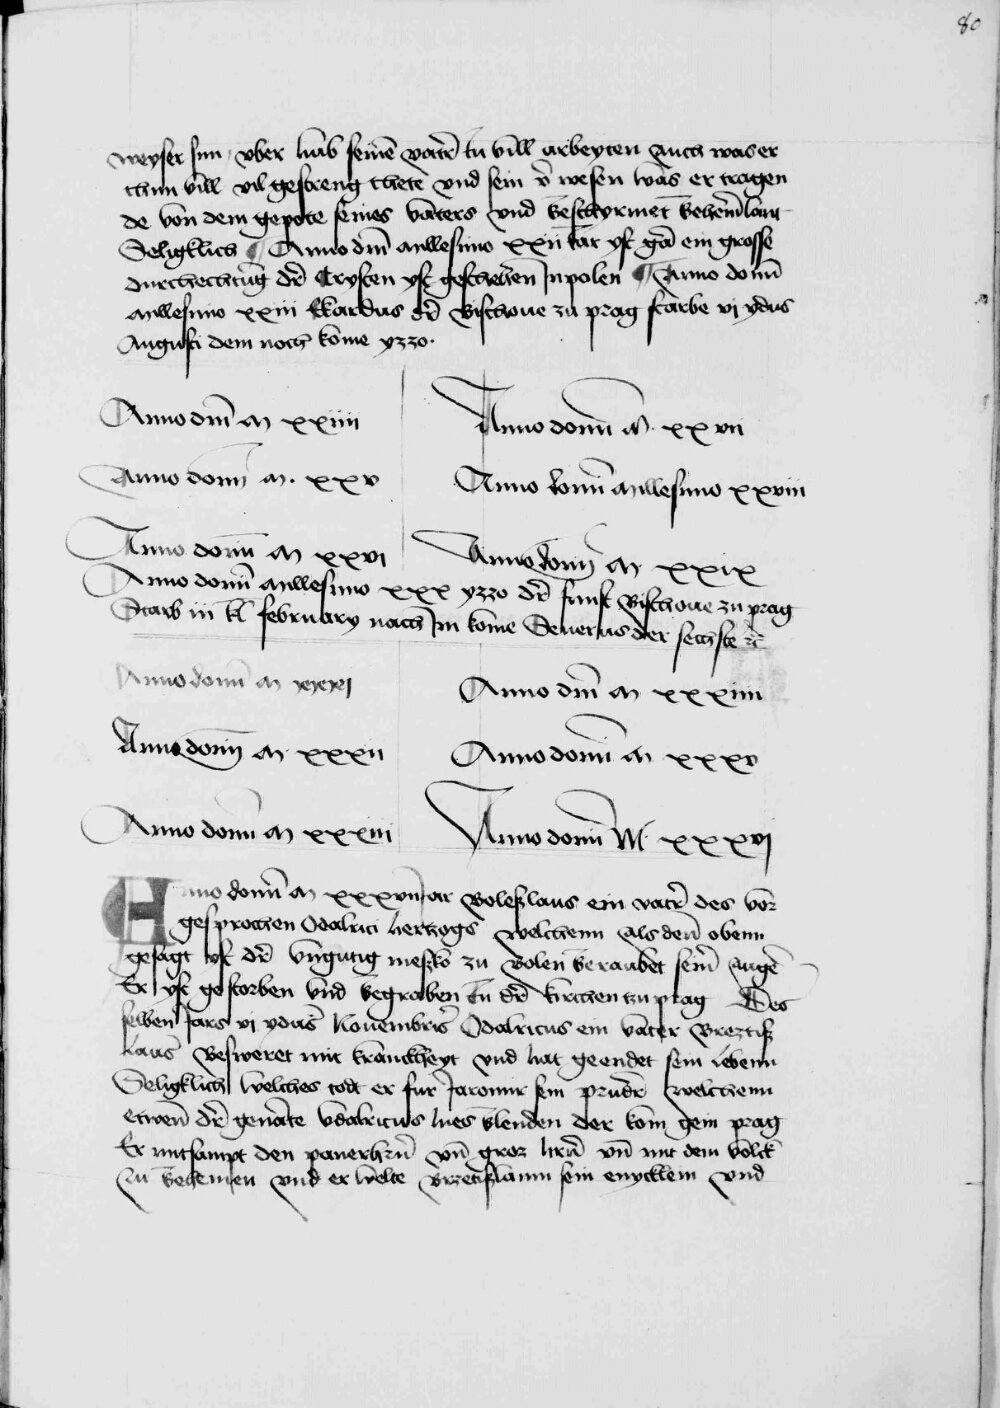 80
weyser sun vber hab seinē vatr̄ in vill arbeyten Auch was er
thun vill vil gestreng thete vnd sein wesen was er tragen
de von dem gepote seines vaters vnd beschyrmet behem̄lant
Seligklich ¶ Anno dm̄ millesimo xxii iar yst gar ein grosse
durchechtūg dr̄ Crysten yst geschehen In polen ¶ Anno domī
millesimo xxiii Ekardus dr̄ Bischoue zu prag starbe vi ydus
Augusti dem noch kome yzzo.
Anno dm̄ M xxiiii
Anno domī M. xxv
Anno domī M xxvi
Anno domī M. xxvii
Anno domī millesimo xxviii
Anno domī M xxix
Anno domī millesimo xxx yzzo dr̄ funft Bischoue zu prag
Starb iii kl february nach Im kome Seuerus der sechste
Anno domī M xxxi
Anno domī M. xxxii
Anno domī M xxxiii
Anno dm̄ M xxxiiii
Anno domī M xxxv
Anno domī M. xxxvi
Anno domī M xxxvii Jar Boleslaus ein vatr̄ des vor
gesprochen Odalrici hertzogs welchem als den obenn
gesagt yst dr̄ vngutig mesko zu Bolen beraubet seinr̄ Augē
Er yst gestorben vnd begraben In dr̄ kirchen zu prag Des
selben Jars vi ydus Nouembris Odalricus ein vater Breztis
laus besweret mit kranckheyt vnd hat geendet sein lebenn
Seligklich welches todt er fur Jaromir sein prudr̄ welchenn
etwen dr̄ genāte vdalricus lies blenden der kom gein prag
Er mitsampt den panerhrn̄ vn̄ groz hrn̄ vn̄ mit dem volck
zu behemen vnd er welte brzetislaum sein enycklein vnd